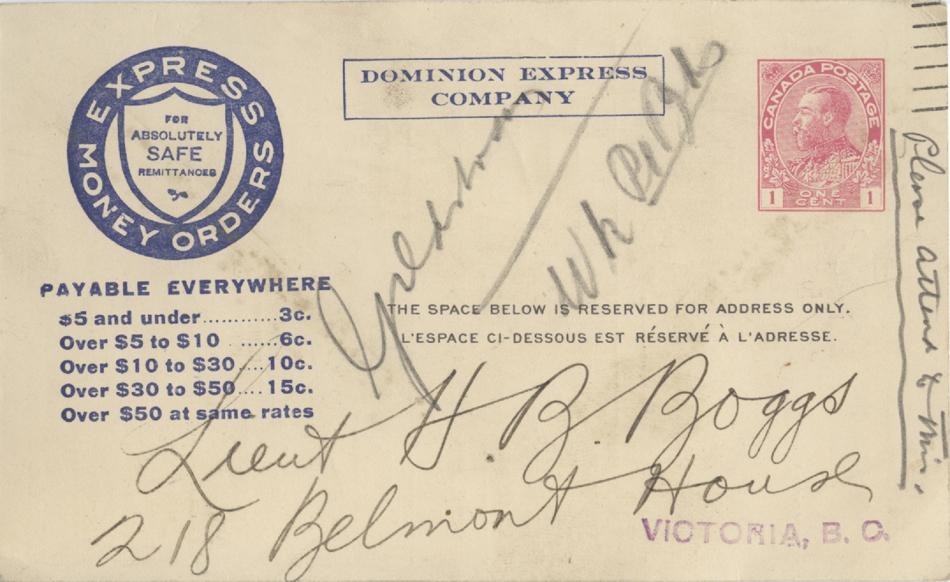 EXPRESS MONEY ORDERS
FOR
ABSOLUTELY
SAFE
REMITTANCES
DOMINION EXPRESS
COMPANY
CANADA POSTAGE
1 ONE CENT 1
PAYABLE EVERYWHERE
$5 and under...........3c.
Over $5 to $10 ......6c.
Over $10 to $30....10c.
Over $30 to $50....15c.
Over $50 at same rates
Wk
THE SPACE BELOW IS RESERVED FOR ADDRESS ONLY.
L'ESPACE CI-DESSOUS EST RÉSERVÉ À L'ADRESSE.
Lieut H. B. Boggs
218 Belmont House
VICTORIA, B. C.
Please attend to this.